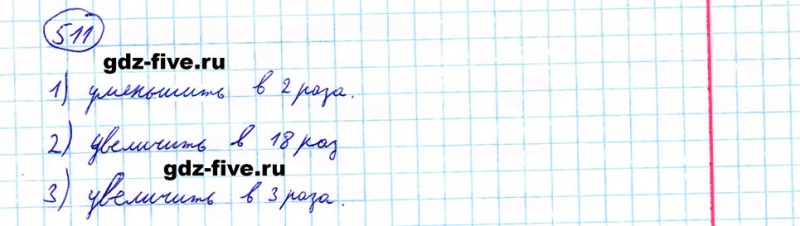 511
gdz-five.ru
1) уменьшить в 2 раза.
2) увеличить в 18 раз
gdz-five.ru
3) увеличить в 3 раза.